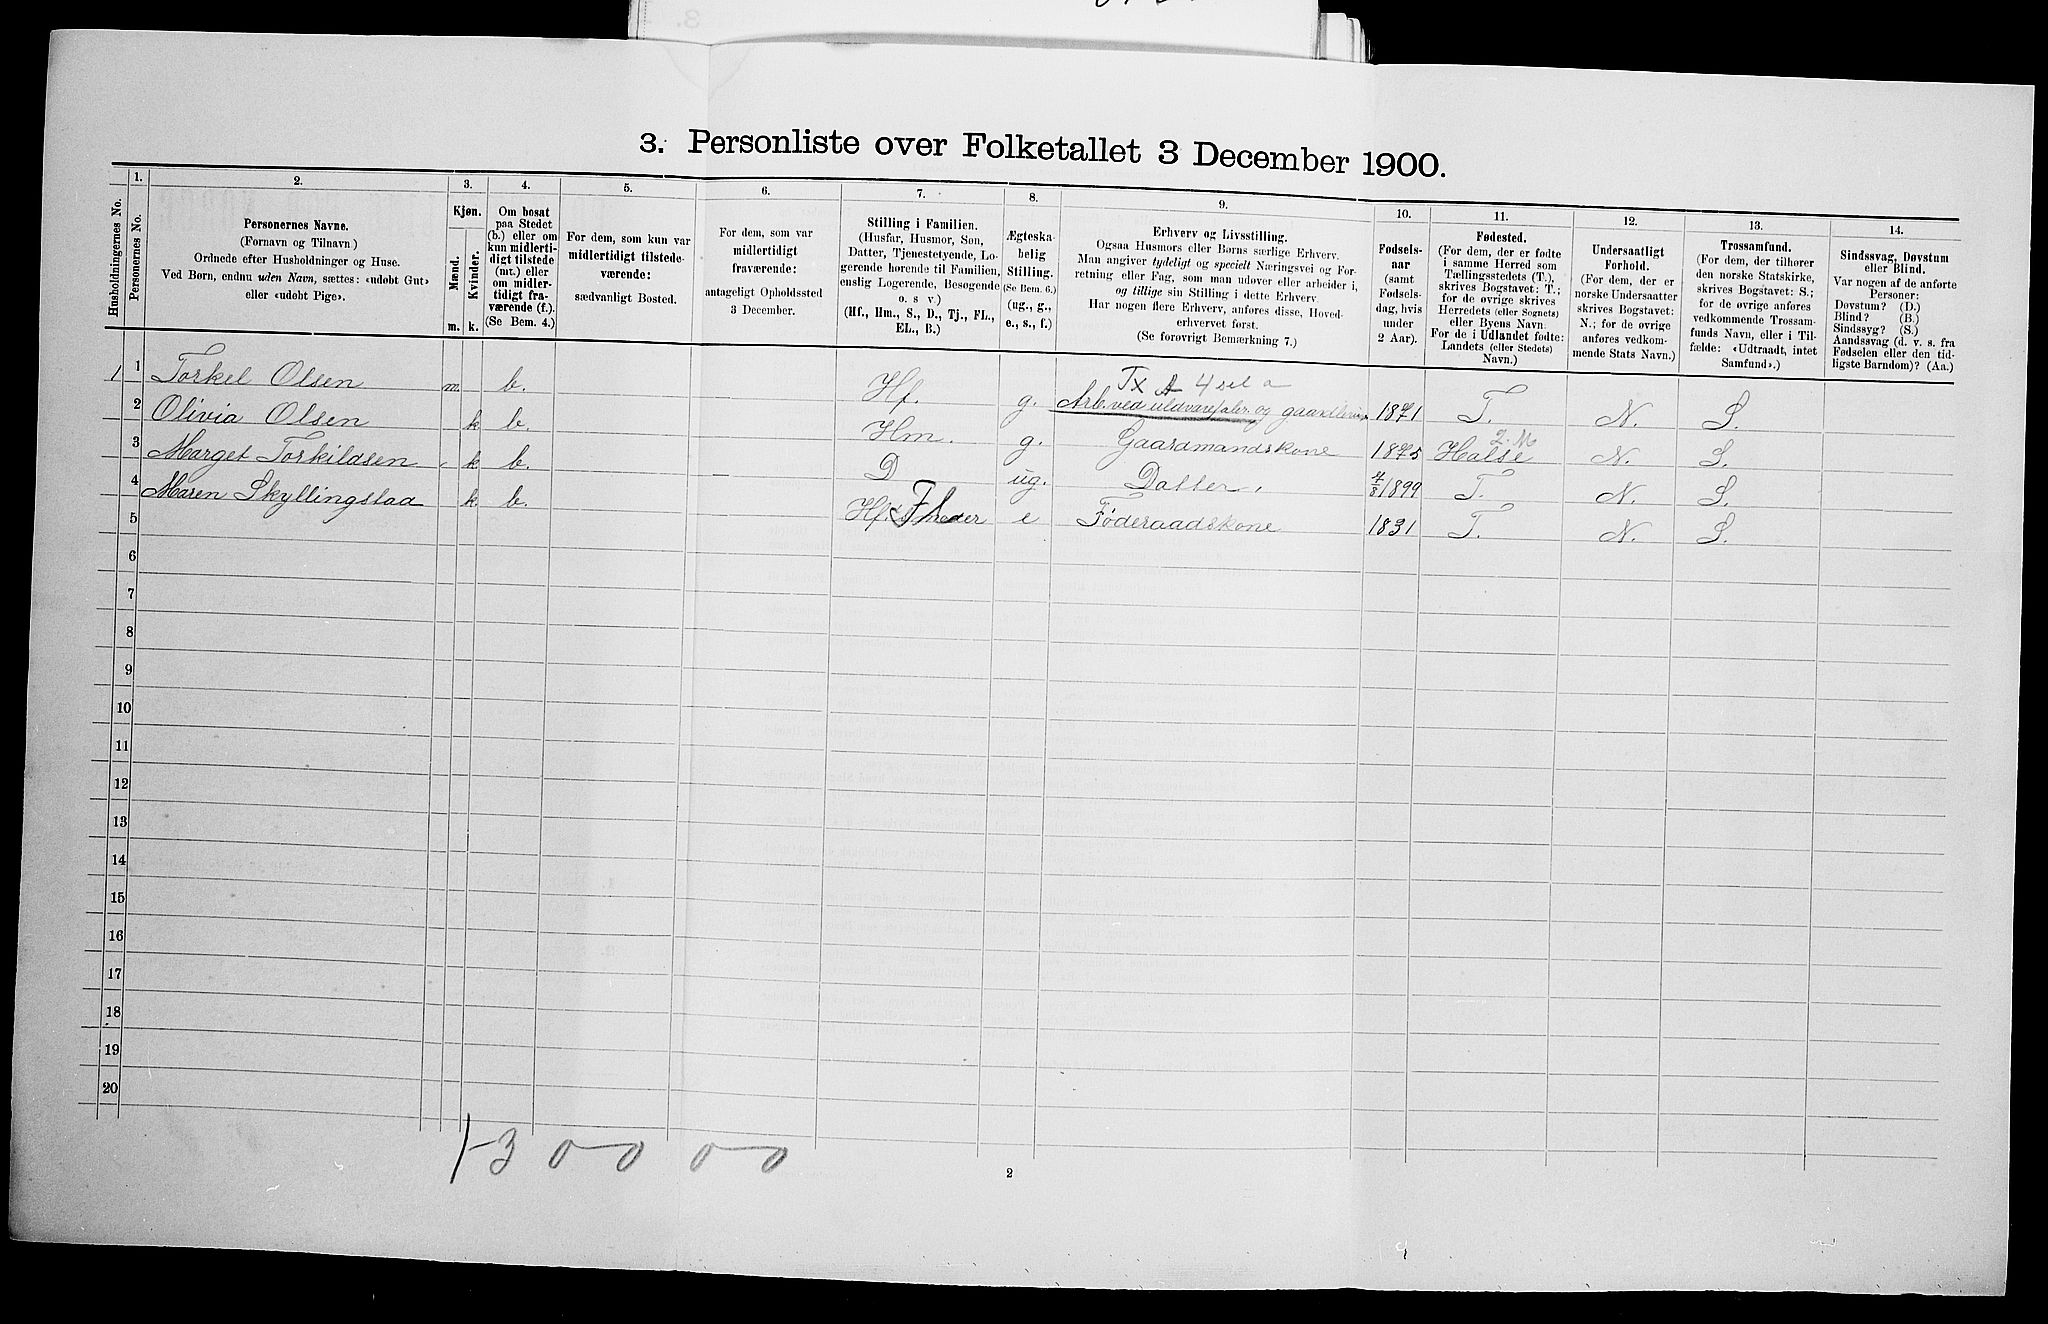 3. Personliste over Folketallet 3 December 1900.
Husholdningernes No.
1. Personernes No.
2. Personernes Navne.
(Fornavn og Tilnavn)
Ordnede efter Husholdninger og Huse.
Ved Børn, endnu uden Navn, sættes: «udøbt Gut»
eller «udøbt Pige».
3. Kjøn.
Mænd. Kvinder.
m. k.
4. Om bosat
paa Stedet
(b.) eller om
kun midlerti-
digt tilstede
(mt.) eller
om midler-
tidigt fra-
værende (f.).
(Se Bem. 4.)
5. For dem, som kun var
midlertidigt tilstede-
værende:
sædvanligt Bosted.
6. For dem, som var
midlertidigt
fraværende:
antageligt Opholdssted
3 December.
7. Stilling i Familien.
(Husfar, Husmor, Søn,
Datter, Tjenestetyende, Lo-
gerende hørende til Familien,
enslig Logerende, Besøgende
o. s. v.)
(Hf., Hm., S., D., Tj., FL.,
EL., B.)
8. Ægteska-
belig
Stilling.
(Se Bem. 6.)
(ug., g.,
e., s., f.)
9. Erhverv og Livsstilling.
Ogsaa Husmors eller Børns særlige Erhverv.
Man angiver tydeligt og specielt Næringsvei og For-
retning eller Fag, som man udøver eller arbeider i,
og tillige sin Stilling i dette Erhverv.
Har nogen flere Erhverv, anføres disse, Hoved-
erhvervet først.
(Se forøvrigt Bemærkning 7.)
10. Fødsels-
aar
(samt
Fødsels-
dag, hvis
under
2 Aar).
11. Fødested.
(For dem, der er fødte
i samme Herred som
Tællingsstedets (T.),
skrives Bogstavet: T.;
for de øvrige skrives
Herredets (eller Sognets)
eller Byens Navn.
For de i Udlandet fødte:
Landets (eller Stedets)
Navn.)
12. Undersaatligt
Forhold.
(For dem, der er
norske Undersaatter
skrives Bogstavet:
N.; for de øvrige
anføres vedkom-
mende Stats Navn.)
13. Trossamfund.
(For dem, der tilhører
den norske Statskirke,
skrives Bogstavet: S.;
for de øvrige anføres
vedkommende Trossam-
funds Navn, eller i Til-
fælde: «Udtraadt, intet
Samfund».)
14. Sindssvag, Døvstum
eller Blind.
Var nogen af de anførte
Personer:
Døvstum? (D.)
Blind? (B.)
Sindssyg? (S.)
Aandssvag (d. v. s. fra
Fødselen eller den tid-
ligste Barndom)? (Aa.)
Tx A 4
1 1 Torkel Olsen m b. Hf. g. Arb. ved uldvarefabr. og 1871 T. N. S.
2 Olivia Olsen k b. Hm. g. Gaardmandskone 1875 Halse N. S.
3 Marget Torkildsen k b. D ug. Datter. 4/8 1899 T. N. S.
4 Maren Skyllingstad k b. Hf. FL e Føderaadskone 1831 T. N. S.
5
6
7
8
9
10
11
12
13
14
15
16
17
18
19
20
1-3 0-0 0-0
2